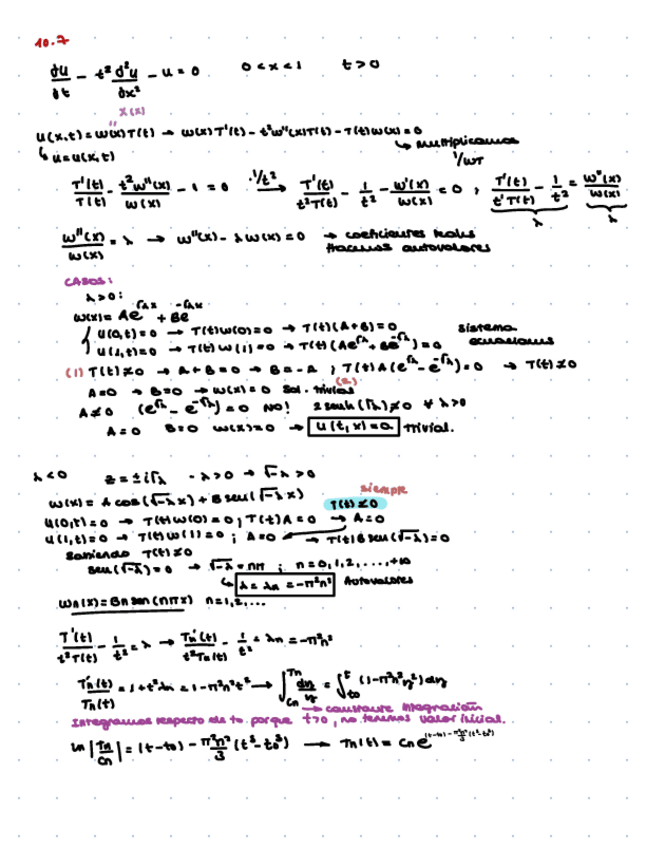 10.7
∂u/∂t - t² ∂²u/∂x² - u = 0    0 < x < 1    t > 0
X(x)
u(x,t) = w(x) T(t) → w(x) T'(t) - t² w''(x) T(t) - T(t) w(x) = 0
↳ u = u(x,t)    ↳ multiplicamos 1/wT
T'(t)/T(t) - t² w''(x)/w(x) - 1 = 0  ·1/t² →  T'(t)/t²T(t) - 1/t² - w'(x)/w(x) = 0 ; T'(t)/t²T(t) - 1/t² = w''(x)/w(x)
λ    λ
w''(x)/w(x) = λ → w''(x) - λ w(x) = 0 → coeficientes reales
Hacemos autovalores
CASOS:
λ > 0:
w(x) = Ae^√λx + Be^-√λx
u(0,t) = 0 → T(t) w(0) = 0 → T(t) (A + B) = 0    sistema
u(1,t) = 0 → T(t) w(1) = 0 → T(t) (Ae^√λ + Be^-√λ) = 0    ecuaciones
(1) T(t) ≠ 0 → A + B = 0 → B = -A ; T(t) A (e^√λ - e^-√λ) = 0 → T(t) ≠ 0
(2)
A = 0 → B = 0 → w(x) = 0 Sol. trivial
A ≠ 0 (e^√λ - e^-√λ) = 0 NO! 2 senh (√λ) ≠ 0 ∀ λ > 0
A = 0 B = 0 w(x) = 0 → u(t,x) = 0. Trivial.
λ < 0    z = ± i√λ    -λ > 0 → √-λ > 0
siempre
w(x) = A cos (√-λ x) + B sen (√-λ x)    T(t) ≠ 0
u(0,t) = 0 → T(t) w(0) = 0 ; T(t) A = 0 → A = 0
u(1,t) = 0 → T(t) w(1) = 0 ; A = 0 → T(t) B sen (√-λ) = 0
Sabiendo T(t) ≠ 0
sen (√-λ) = 0 → √-λ = nπ ; n = 0, 1, 2, ..., +∞
↳ λ = λn = -π²n² Autovalores
wn(x) = Bn sen (nπx) n = 1, 2, ...
T'(t)/t²T(t) - 1/t² = λ → Tn'(t)/t²Tn(t) - 1/t² = λn = -π²n²
Tn'(t)/Tn(t) = 1 + t²λn = 1 - π²n²t² → ∫_Cn^Tn dη/η = ∫_t0^t (1 - π²n²η²) dη
→ constante integración
Integramos respecto de to porque t > 0, no tenemos valor inicial.
ln |Tn/Cn| = (t - t0) - π²n²/3 (t³ - t0³) → Tn(t) = Cn e^(t-t0) - π²n²/3 (t³-t0³)